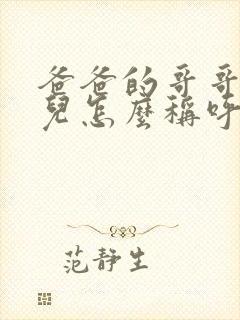 爸爸的哥哥
兒怎麼稱呼
范靜生